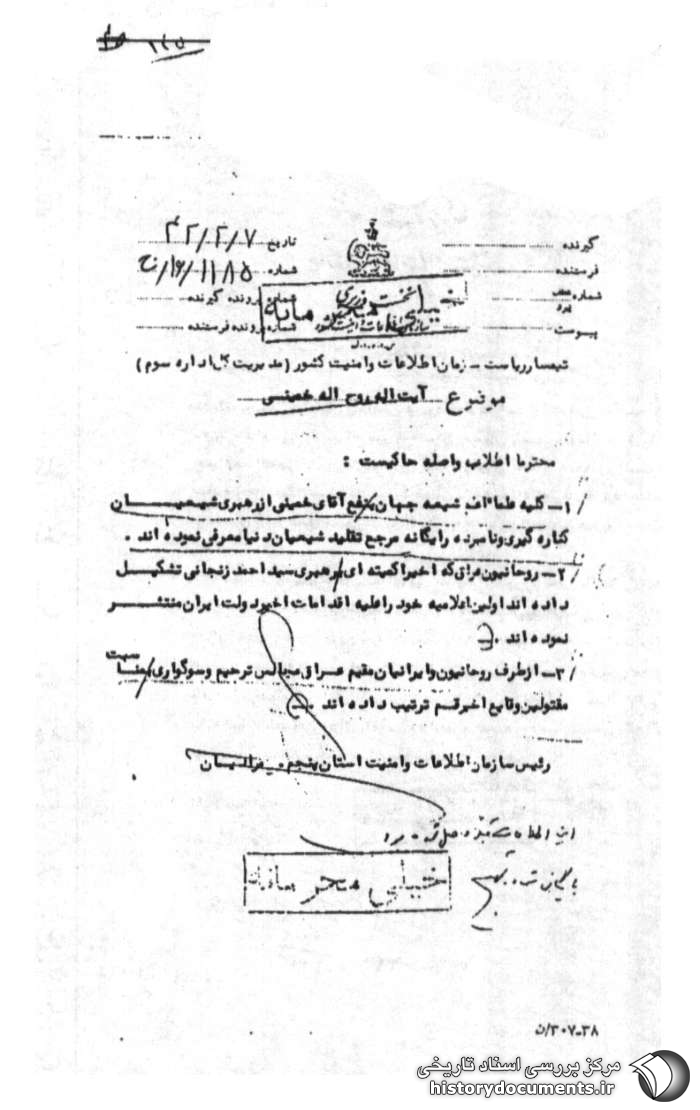 گیرنده
تاریخ ۴۲/۲/۷
فرستنده
شماره ۱۱۸۵/۱۶/
شماره
شماره پرونده گیرنده
نخست وزیری
خیلی محرمانه
سازمان اطلاعات و امنیت کشور
پیوست
شماره پرونده فرستنده
س.ا.و.ا.ک
تیمسار ریاست سازمان اطلاعات و امنیت کشور (مدیریت کل اداره سوم)
موضوع آیت اله روح اله خمینی
محترما اطلاعات واصله حاکیست :
۱ـ کلیه طبقات شیعه جهان بنفع آقای خمینی از رهبری شیعیـــــان
کناره گیری و نامبرده را یگانه مرجع تقلید شیعیان دنیا معرفی نموده اند .
۲ـ روحانیون عراق که اخیرا کمیته ای برهبری سید احمد زنجانی تشکیل
داده اند اولین اعلامیه خود را علیه اقدامات اخیر دولت ایران منتشر
نموده اند .
۳ـ از طرف روحانیون و ایرانیان مقیم عراق مجالس ترحیم و سوگواری بمناسبت
مقتولین وقایع اخیر قم ترتیب داده اند .
رئیس سازمان اطلاعات و امنیت استان پنجم ـ
خیلی محرمانه
۳۰۷-۳۸/ن
مرکز بررسی اسناد تاریخی
historydocuments.ir